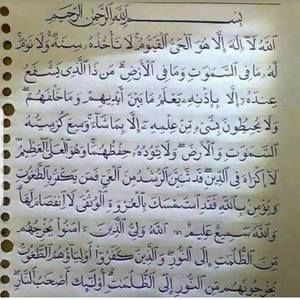 بِسْمِ اللَّهِ الرَّحْمَٰنِ الرَّحِيمِ
اللَّهُ لَا إِلَٰهَ إِلَّا هُوَ الْحَيُّ الْقَيُّومُ لَا تَأْخُذُهُ سِنَةٌ وَلَا نَوْمٌ
لَهُ مَا فِي السَّمَٰوَٰتِ وَمَا فِي الْأَرْضِ مَن ذَا الَّذِي يَشْفَعُ
عِندَهُ إِلَّا بِإِذْنِهِ يَعْلَمُ مَا بَيْنَ أَيْدِيهِمْ وَمَا خَلْفَهُمْ
وَلَا يُحِيطُونَ بِشَيْءٍ مِّنْ عِلْمِهِ إِلَّا بِمَا شَاءَ وَسِعَ كُرْسِيُّهُ
السَّمَٰوَٰتِ وَالْأَرْضَ وَلَا يَئُودُهُ حِفْظُهُمَا وَهُوَ الْعَلِيُّ الْعَظِيمُ
لَا إِكْرَاهَ فِي الدِّينِ قَد تَّبَيَّنَ الرُّشْدُ مِنَ الْغَيِّ فَمَن يَكْفُرْ بِالطَّٰغُوتِ
وَيُؤْمِن بِاللَّهِ فَقَدِ اسْتَمْسَكَ بِالْعُرْوَةِ الْوُثْقَىٰ لَا انفِصَامَ لَهَا
وَاللَّهُ سَمِيعٌ عَلِيمٌ اللَّهُ وَلِيُّ الَّذِينَ ءَامَنُوا يُخْرِجُهُم
مِّنَ الظُّلُمَٰتِ إِلَى النُّورِ وَالَّذِينَ كَفَرُوا أَوْلِيَاؤُهُمُ الطَّٰغُوتُ
يُخْرِجُونَهُم مِّنَ النُّورِ إِلَى الظُّلُمَٰتِ أُولَٰئِكَ أَصْحَٰبُ النَّارِ